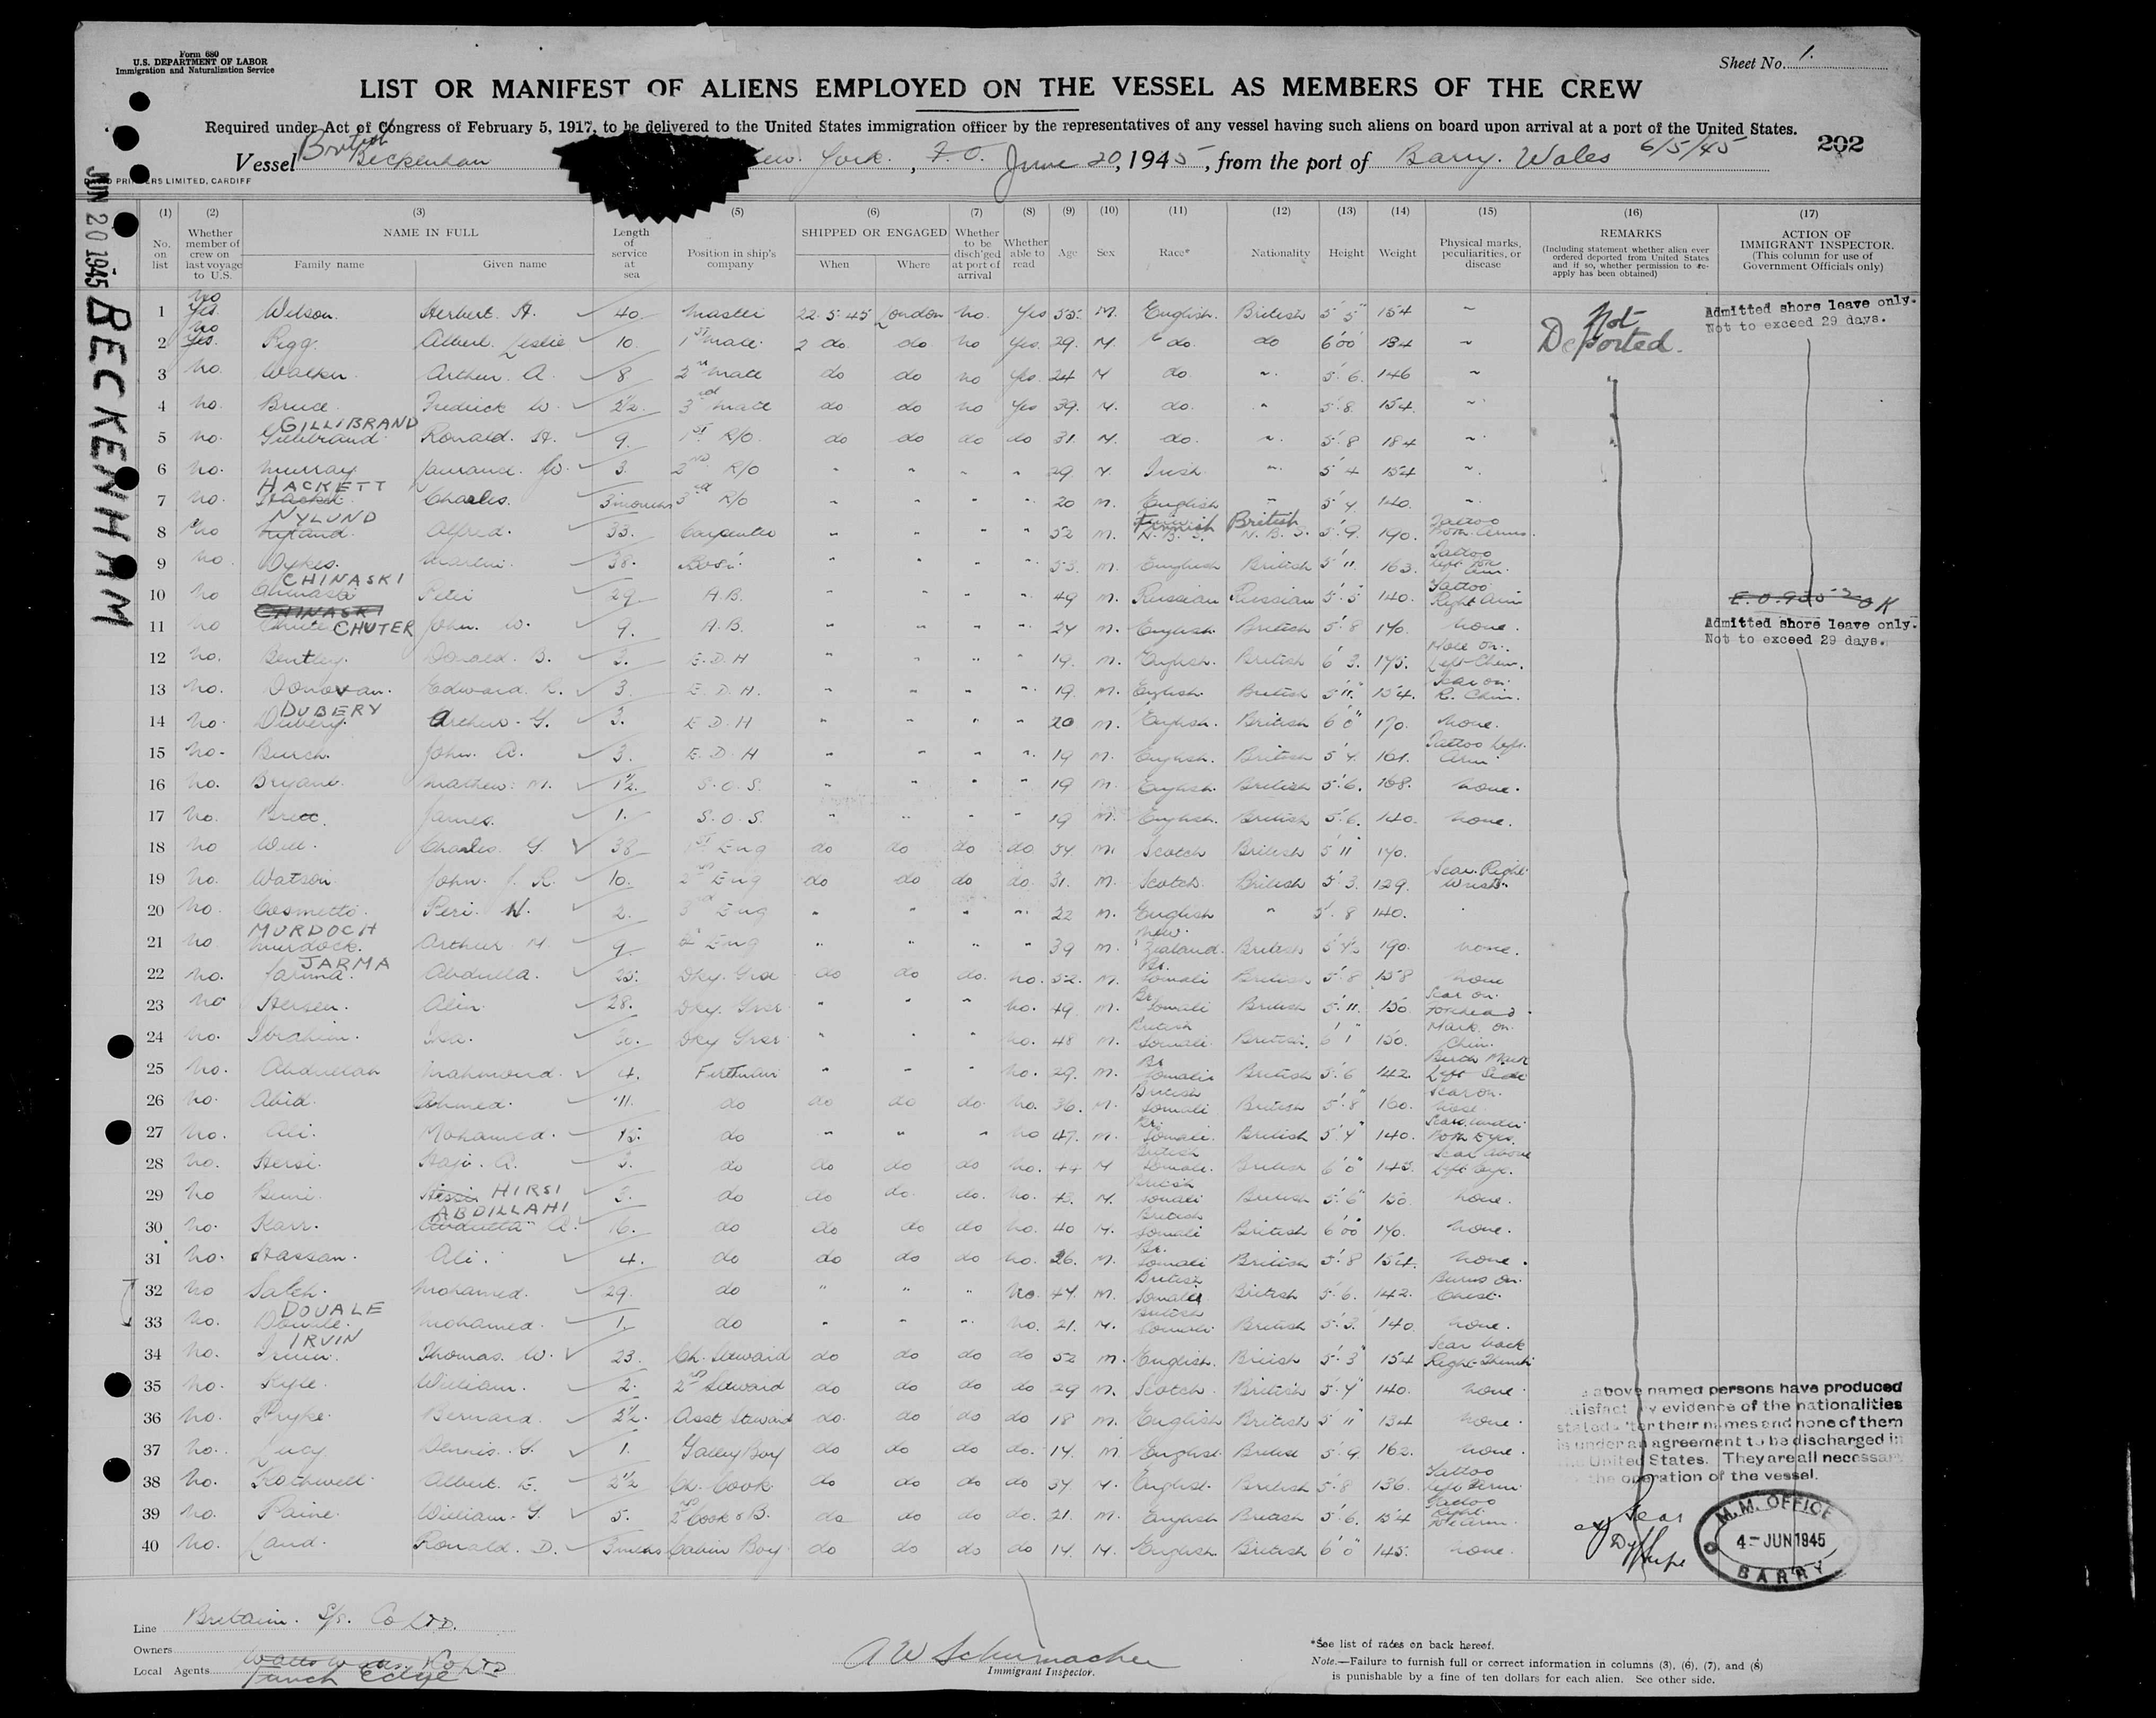 Form 680
U.S. DEPARTMENT OF LABOR
Immigration and Naturalization Service
Sheet No. 1.
LIST OR MANIFEST OF ALIENS EMPLOYED ON THE VESSEL AS MEMBERS OF THE CREW
Required under Act of Congress of February 5, 1917, to be delivered to the United States immigration officer by the representatives of any vessel having such aliens on board upon arrival at a port of the United States.
202
British
Vessel Beckenham ew York. , June 20, 1945, from the port of Barry. Wales 6/5/45
RS LIMITED, CARDIFF
JUN 20 1945 BECKENHAM
(1) (2) (3) (5) (6) (7) (8) (9) (10) (11) (12) (13) (14) (15) (16) (17)
No. on list
Whether member of crew on last voyage to U.S.
NAME IN FULL
Family name Given name
Length of service at sea
Position in ship's company
SHIPPED OR ENGAGED
When Where
Whether to be disch'ged at port of arrival
Whether able to read
Age Sex Race* Nationality Height Weight
Physical marks, peculiarities, or disease
REMARKS
(Including statement whether alien ever ordered deported from United States and if so, whether permission to re-apply has been obtained)
ACTION OF IMMIGRANT INSPECTOR.
(This column for use of Government Officials only)
1 No Yes. Wilson. Herbert. A. 40. Master 22.5.45 London No. Yes 55. M. English. British 5'5" 154 ~
Admitted shore leave only.
Not to exceed 29 days.
Not Deported.
2 No Yes. Pigg. Albert. Leslie 10. 1st Mate. 2 do. do no Yes. 29. M. do. do 6'00 184 ~
3 No. Walker. Arthur. A. 8. 2nd Mate do do no Yes. 24 M do. ~ 5'6. 146 ~
4 No. Bruce. Fredrick W. 2½. 3rd Mate do do no Yes 39. M. do. " 5'8. 154. ~
5 No. Gillibrand. GILLIBRAND Ronald. H. 9. 1st R/O. do do do do 31. M. do. ~ 5'8 184 ~
6 No. Murray W. 3. 2nd R/O " " " " 29 M Irish " 5'4 154 ~
7 No. HACKETT Charles. 3 months 3rd R/O " " " 20 M. English " 5'7 140. ~
8 No NYLUND Alfred. 33. Carpenter " " " " 52 M. Finnish N.B.S. British N.B.S. 5'9. 190. Tattoo Both Arms.
9 No. Dykes. Martin. 38. Bosn " " " " 53. M. English British 5'11 163. Tattoo left Arm.
10 No CHINASKI Peter 29. A.B. " " " " 49 M. Russian Russian 5'5 140. Tattoo Right Arm
11 No CHINASKI CHUTER John. W. 9. A.B. " " " " 24 M. English. British 5'8 170. None.
Admitted shore leave only.
Not to exceed 29 days.
12 No. Bentley. Donald. B. 3. E.D.H " " " " 19. M. English. British 6'3. 175. Mole on
13 No. Donovan. Edward. R. 3. E.D.H. " " " " 19. M. English. British 5'11." 154. Scar on R. Chin.
14 No. DUBERY Arthur. G. 3. E D.H " " " " 20 M. English. British 6'0" 170. None.
15 No. Burch. John. A. 3. E.D.H " " " " 19 M. English. British 5'7. 161. Tattoo Left. Arm.
16 No. Bryant. Mathew. M. 1½. S.O.S. " " " " 19 M. English. British 5'6. 168. None.
17 No. Brett. James. 1. S.O.S. " " " " 19 M. English. British 5'6. 140. None.
18 No Will. Charles. G. 38 1st Eng do do do do 54. M. Scotch British 5'11" 170.
19 No. Watson. John. R. 10. 2nd Eng do do do do. 31. M. Scotch. British 5'3. 129. Scar. Right Wrist.
20 No. Cosmetto. Peri. W. 2. 3rd Eng " " " " 22 M. English " 5'8 140.
21 No MURDOCH Murdock. Arthur. M. 9. 4 Eng " " " " 39 M. New Zealand. British 190. None.
22 No. JARMA Abdulla. 25. Dky. Gre do do do. No. 52. M. Br. Somali British 5'8 158 None
23 No Hersen. Alin. 28. Dky. Grer " " " No. 49. M. Br. Somali British 5'11. 150. Scar on Forehead.
24 No. Ibrahim. Isa. 30. Dky Grer " " " No. 48 M. British Somali British. 6'1" 150. Mark. on. Chin.
25 No. Abdullah Mahmoud. 4. Fireman " " " No. 29. M. Br Somali British 5'6 142. Birth Mark Left Side
26 No. Abid. Ahmed. 11. do do do do. No. 36. M. British Somali British 5'8" 160. Scar on. Nose.
27 No. Ali. Mohamed. 15. do " " " No 47. M. Br. Somali. British 5'7" 140. Scars under Both Eyes.
28 No. Hersi. Haji. A. 3. do do do do No. 44 M British Somali. British 6'0" 145. Scar above Left Eye.
29 No HIRSI 3. do do do. do. No. 43. M. British Somali British 5'6" 150. None.
30 No. Karr. ABDILLAHI A. 16. do do do do No. 40 M. British Somali British 6'00 170. None.
31 No. Hassan. Ali. 4. do do do do No. 26. M. Br. Somali British 5'8 154. None.
32 No Saleh. Mohamed. 29. do " " " No. 47. M. British Somali British 5'6. 142. Burns on. Chest.
33 No. DOUALE Mohamed. 1. do " " " No. 21. M. British Somali British 5'3. 140 None.
34 No. IRVIN Thomas. W. 23. Ch. Steward do do do do 52 M. English. British 5'3" 154 Scar back Right Thumb
35 No. Kyle. William. 2. 2nd Steward do do do do 29 M. Scotch. British 5'7" 140. None.
36 No. Pryke. Bernard. 2½. Asst Steward do. do do do 18 M. English British 5'11" 134 None.
37 No. Lucy Dennis. G. 1. Galley Boy do do do do. 17. M English. British 5'9. 162. None.
38 No. Rothwell. Albert. E. 2½ Ch. Cook do do do do 37. M. English. British 5'8 136. Tattoo left Arm.
39 No. Paine. William. G. 5. 2nd Cook & B. do do do do. 21. M. English British 5'6. 154 Tattoo Right
40 No. Land. Ronald. D. 3 mths Cabin Boy do do do do 17. M. English. British 6'0" 145. None.
above named persons have produced
evidence of the nationalities
their names and none of them
is under an agreement to be discharged in
United States. They are all necessary
the operation of the vessel.
M.M. OFFICE
4 - JUN 1945
BARRY
Line Britain. S/s. Co LTD.
Owners
Local Agents Funch Edye
A W Schumacher
Immigrant Inspector.
*See list of races on back hereof.
Note.—Failure to furnish full or correct information in columns (3), (6), (7), and (8)
is punishable by a fine of ten dollars for each alien. See other side.